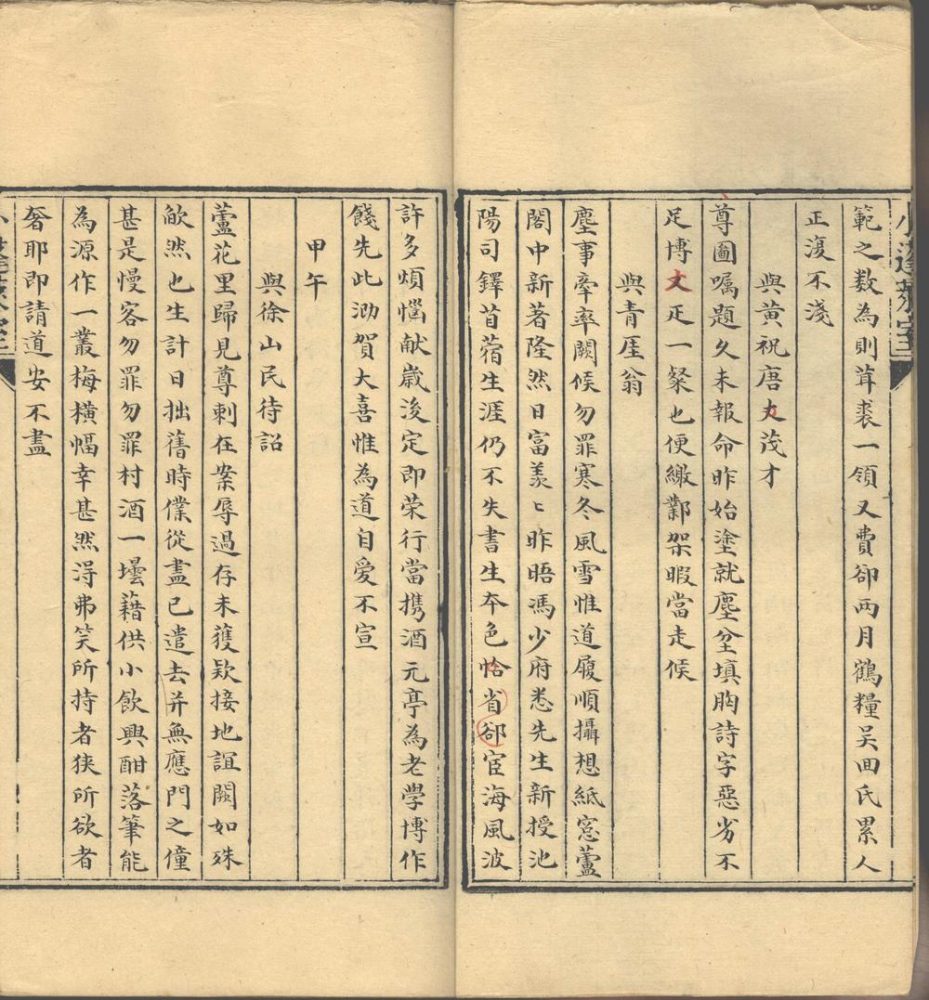 範之数為則葺裘一領又費卻両月鶴糧吴回氏累人
正復不淺
與黄祝唐丈茂才
尊圖嘱題久未報命昨始塗就塵坌填胸詩字惡劣不
足博丈疋一粲也便繳鄴架暇當走候
與青厓翁
塵事牽率闕候勿罪寒冬風雪惟道履順攝想紙窓蘆
閣中新著隆然日富羡〻昨晤馮少府悉先生新授池
陽司鐸苜蓿生涯仍不失書生夲色恰省郤宦海風波
許多煩惱献歲後定即荣行當携酒元亭為老學博作
餞先此泐賀大喜惟為道自爱不宣
甲午
與徐山民待詔
蘆花里歸見尊刺在案辱過存未獲欵接地誼闕如殊
歉然也生計日拙舊時僕從盡已遣去并無應門之僮
甚是慢客勿罪勿罪村酒一壜藉供小飲興酣落筆能
為源作一叢梅横幅幸甚然得弗笑所持者狭所欲者
奢耶即請道安不盡
小蓬萊室